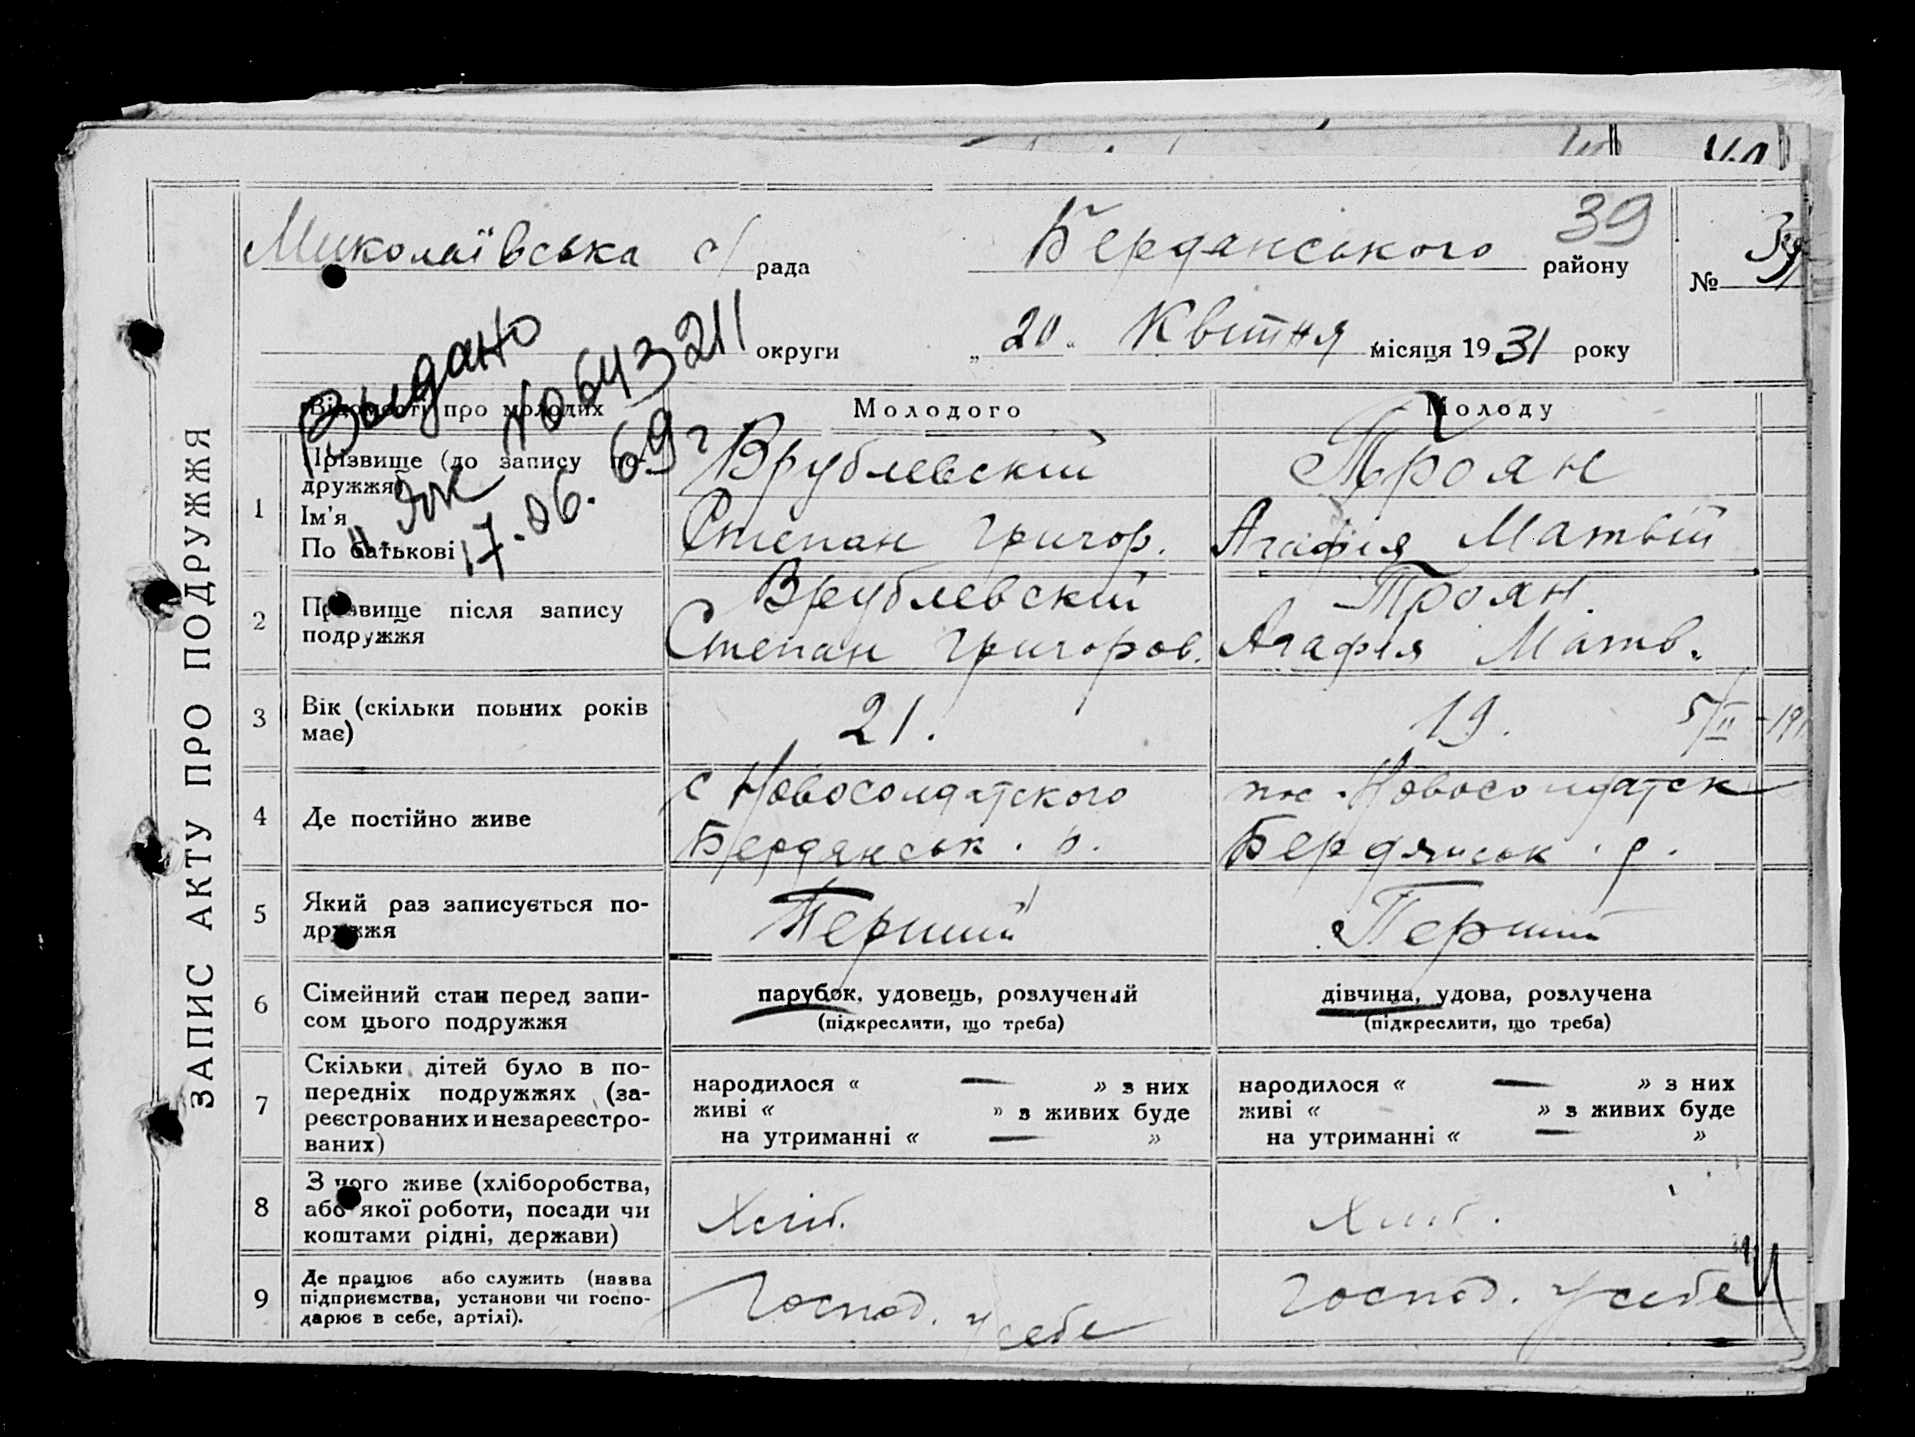 ЗАПИС АКТУ ПРО ПОДРУЖЖЯ
Миколаївська с/рада
Бердянського району
39
№ 39
округи
„20“ Квітня місяця 1931 року
Выдано
№ 643211
17.06.69 г
Відомості про молодих
Молодого
Молоду
1
Прізвище (до запису по-
дружжя)
Ім'я
По батькові
Врублевский
Степан Григор.
Троян
Агафія Матвій
2
Прізвище після запису
подружжя
Врублевский
Степан Григоров.
Троян.
Агафія Матв.
3
Вік (скільки повних років
має)
21.
19.
5/II-191
4
Де постійно живе
с Новосолдатского
Бердянськ. р.
Новосолдатск
Бердянськ. р.
5
Який раз записується по-
дружжя
Перший
Перший
6
Сімейний стан перед запи-
сом цього подружжя
парубок, удовець, розлучений
(підкреслити, що треба)
дівчина, удова, розлучена
(підкреслити, що треба)
7
Скільки дітей було в по-
передніх подружжях (за-
реєстрованих и незареєстро-
ваних)
народилося « — » з них
живі « » з живих буде
на утриманні « — »
народилося « — » з них
живі « » з живих буде
на утриманні « — »
8
З чого живе (хліборобства,
або якої роботи, посади чи
коштами рідні, держави)
Хліб.
Хліб.
9
Де працює або служить (назва
підприємства, установи чи госпо-
дарює в себе, артілі).
Господ. у себе
Господ. у себе